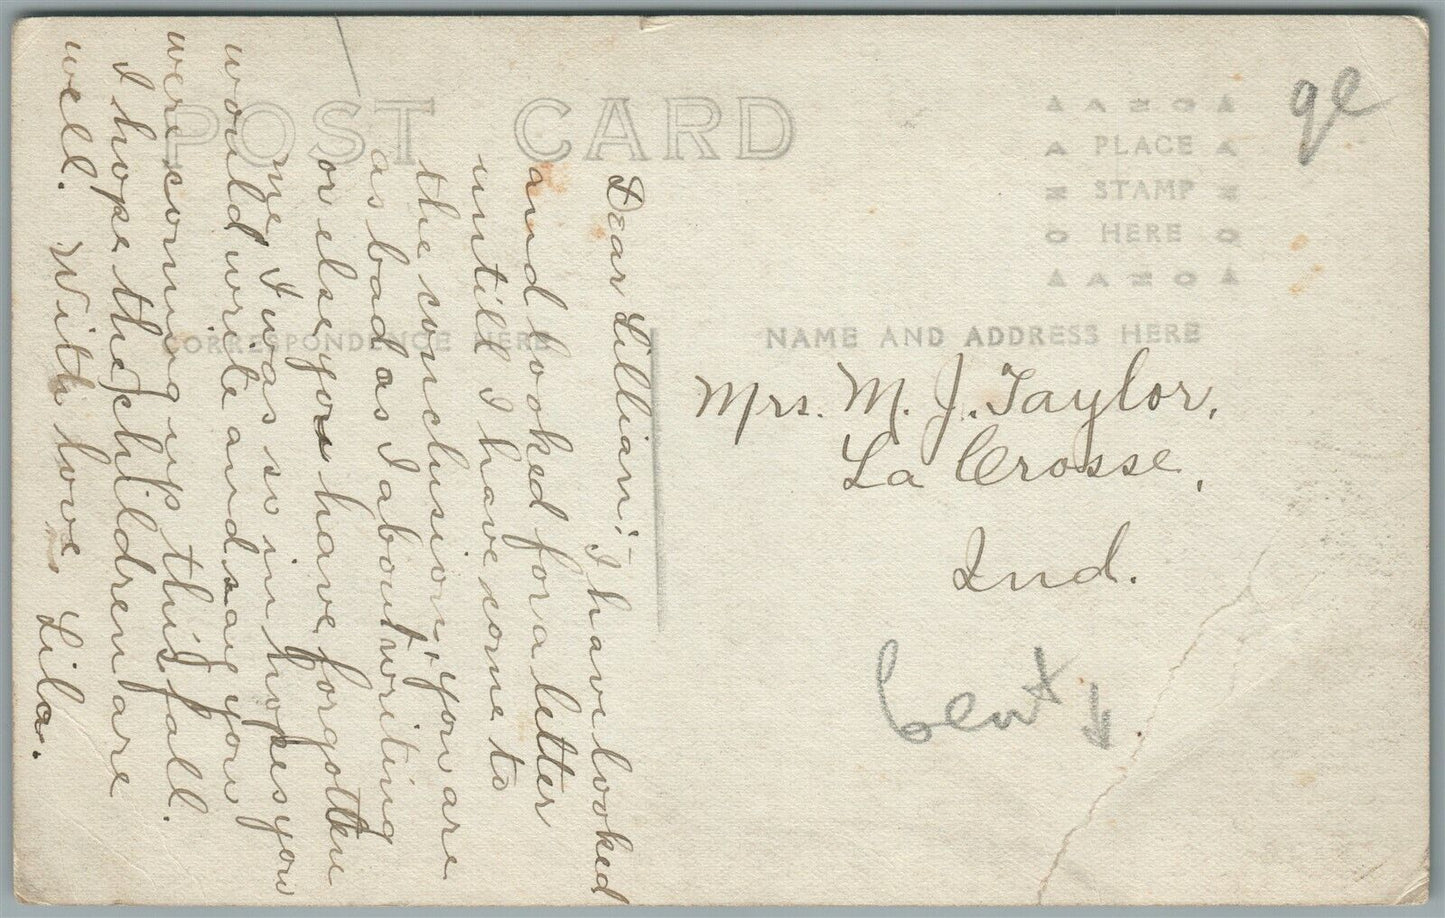 POST CARD
CORRESPONDENCE HERE
NAME AND ADDRESS HERE
PLACE
STAMP
HERE
A Z O A
Dear Lillian:- I have looked
and looked for a letter
untill I have come to
the conclusion, you are
as bad as I about writing
or else you have forgotten
me, I was so in hopes you
would write and say you
were coming up this fall.
I hope the children are
well. With love, Lila.
Mrs. M. J. Taylor,
La Crosse,
Ind.
bent